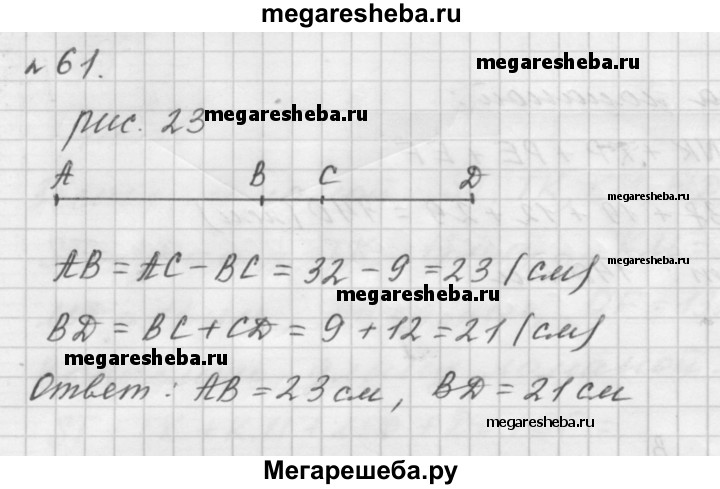 megaresheba.ru
№ 61.
megaresheba.ru
рис. 23
megaresheba.ru
A B C D
megaresheba.ru
AB = AC – BC = 32 – 9 = 23 (см)
megaresheba.ru
megaresheba.ru
BD = BC + CD = 9 + 12 = 21 (см)
megaresheba.ru
Ответ: AB = 23 см, BD = 21 см
megaresheba.ru
Мегарешеба.ру